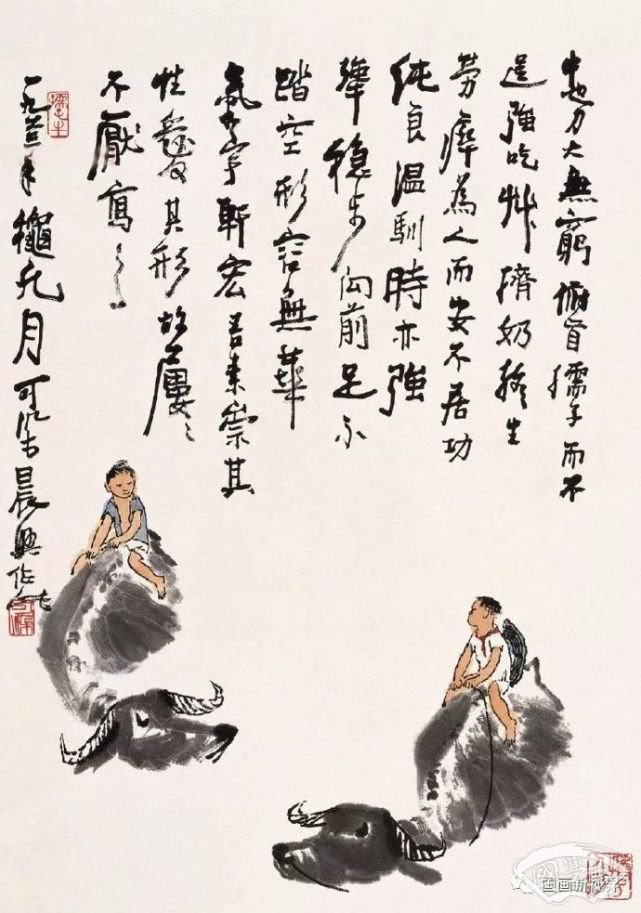 牛也力大無窮俯首孺子而不
逞強吃艸擠奶終生
劳瘁為人而安不居功
純良温馴時亦強
犟穩步向前足不
踏空形容無華
氣宇軒宏吾素崇其
性愛其形故屢々
不厭寫之
一九年龝九月可染晨興作
国画新